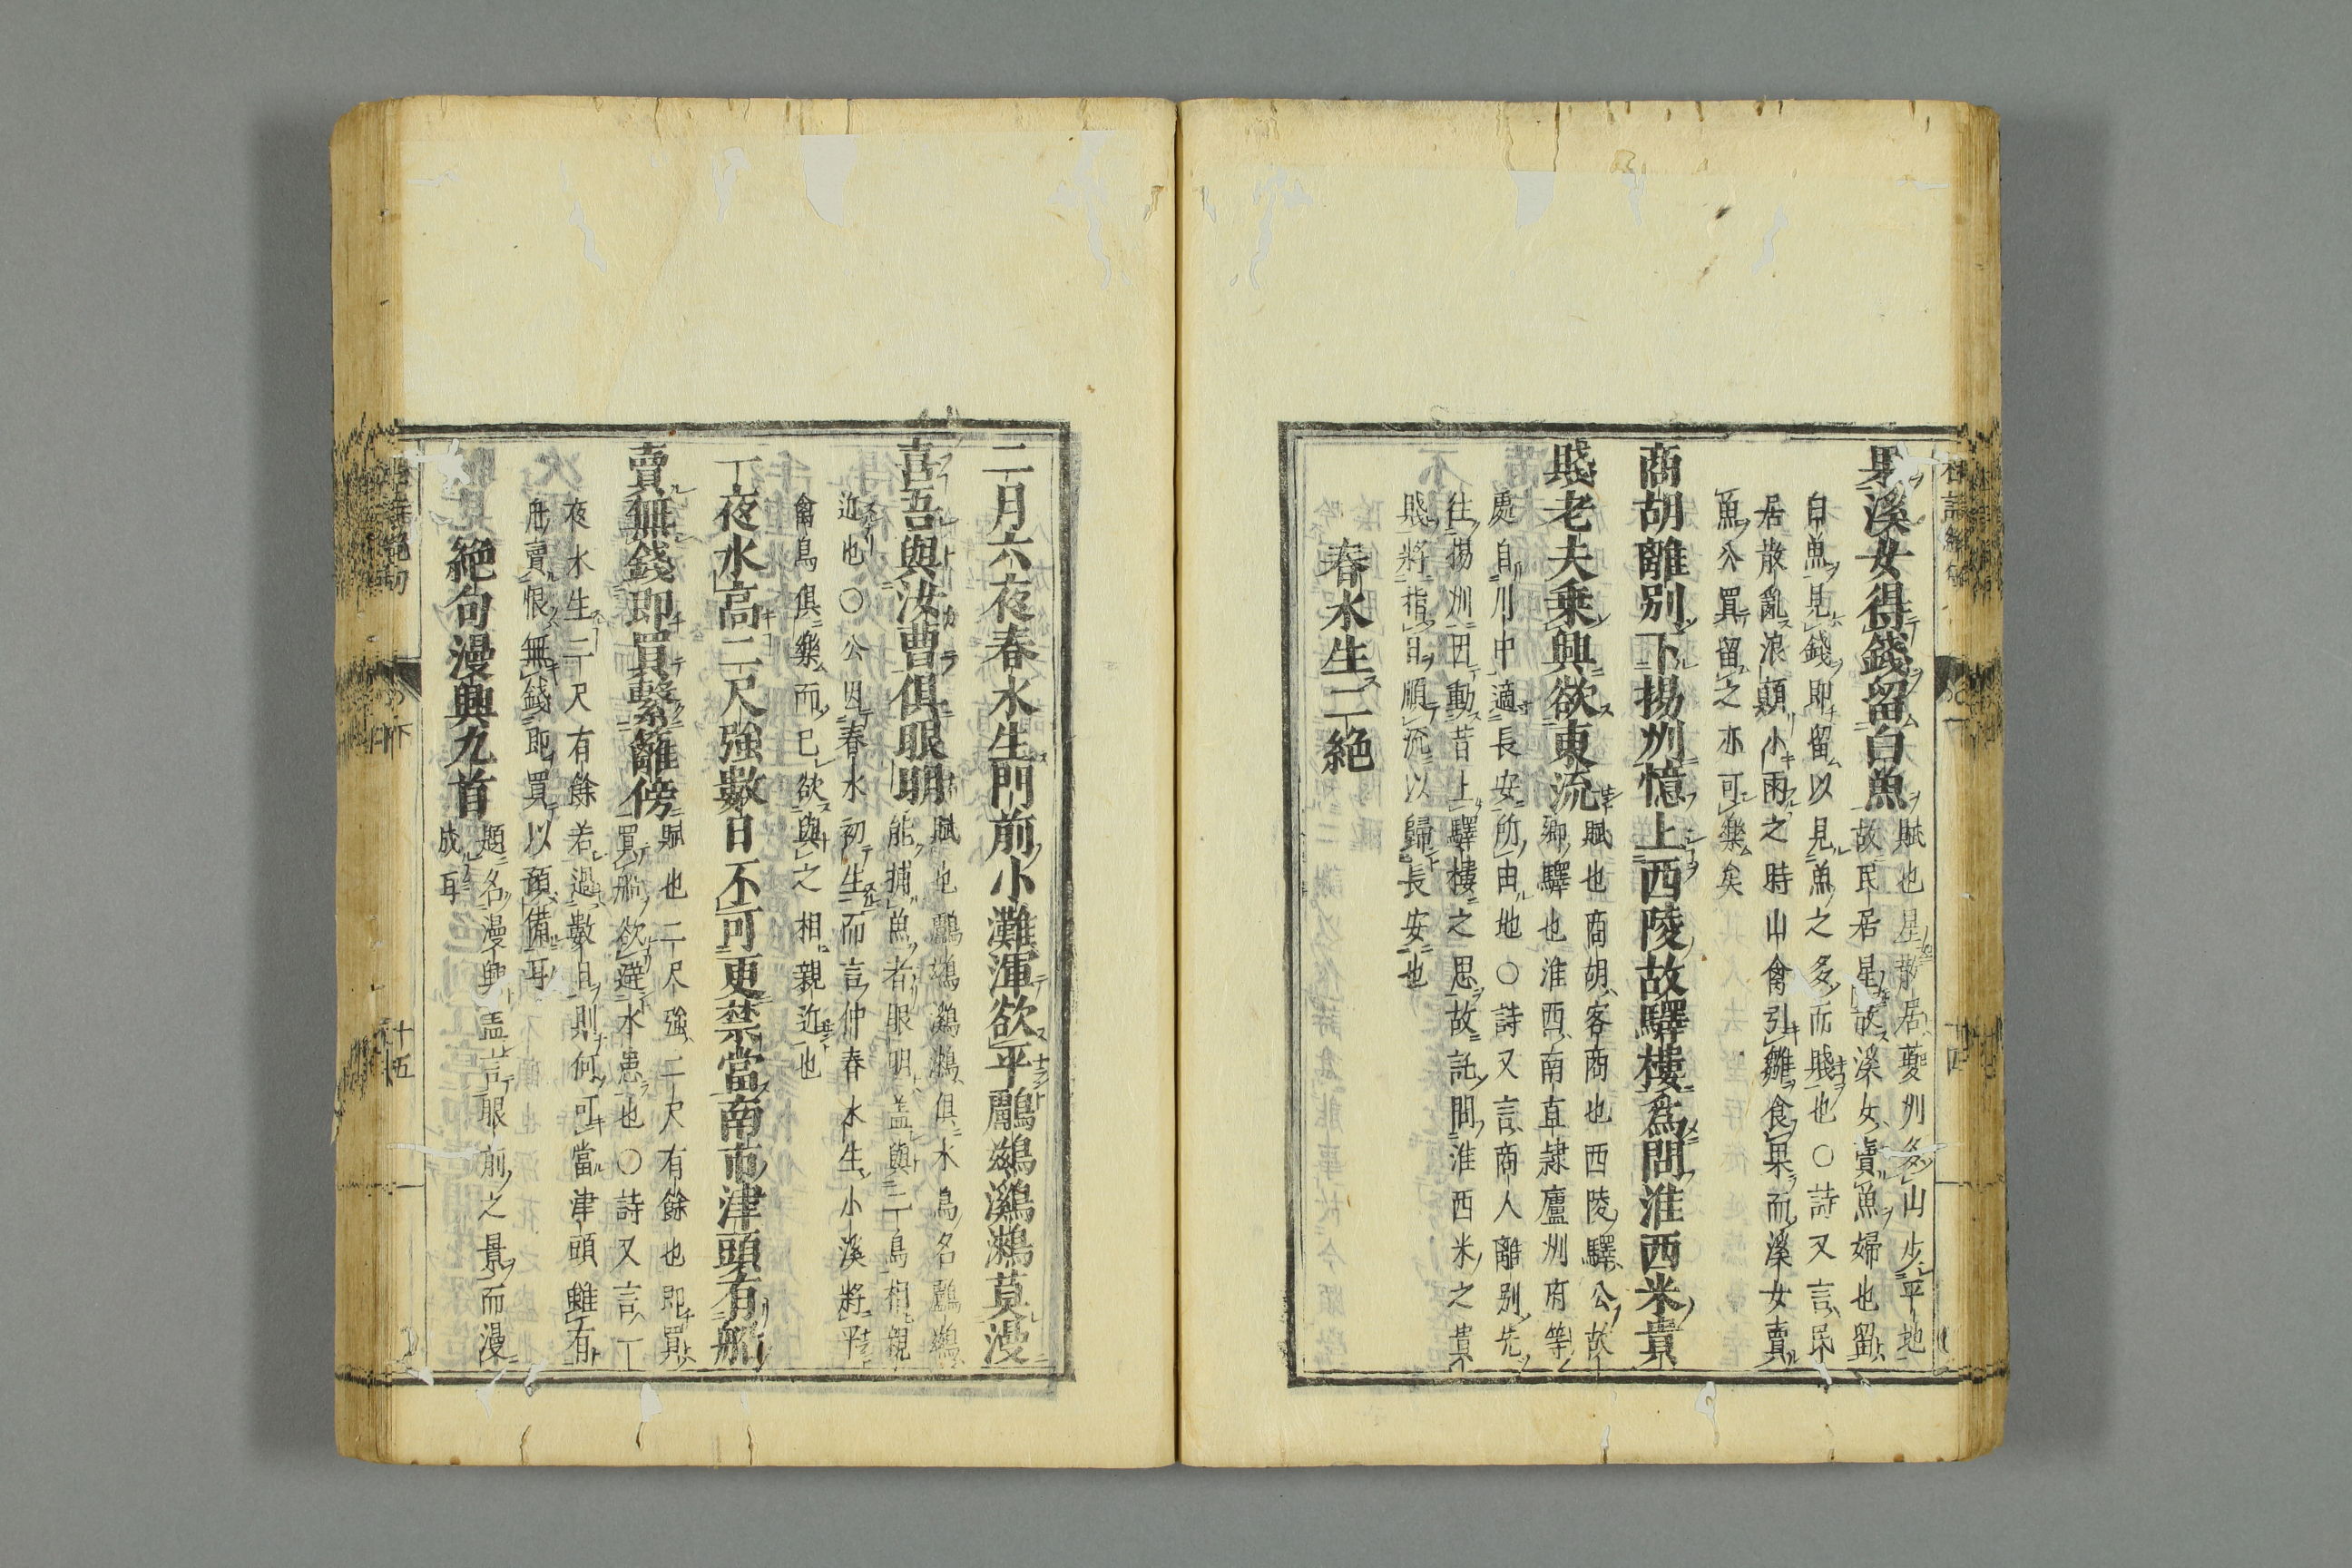 果溪女得錢留白魚
賦也星散居夔州多山少平地
故民居星散溪女賣魚婦也留
白魚見錢即留以見魚之多而賤也○詩又言民
居散亂浪顛小雨之時山禽引雛食果而溪女賣
魚公買留之亦可樂矣
商胡離別下揚州憶上西陵故驛樓為問淮西米貴
賤老夫乗興欲東流
賦也商胡客商也西陵驛公故
鄉驛也淮西南直隷廬州府等
處自川中適長安所由地○詩又言商人離別先
往揚州因動昔上驛樓之思故託問淮西米之貴
賤將指日順流以歸長安也
春水生二絶
二月六夜春水生門前小灘渾欲平鸕鷀鸂鶒莫漫
喜吾與汝曹俱眼明
賦也鸕鷀鸂鶒俱水鳥名鸕鷀
能捕魚者眼明盖與二鳥相親
近也○公因春水初生而言仲春水生小溪將平
禽鳥俱樂而已欲與之相親近也
一夜水高二尺強數日不可更禁當南市津頭有船
賣無錢即買繫籬傍
賦也二尺強二尺有餘也即買
買船欲避水患也○詩又言一
夜水生二尺有餘若過數日則何可當津頭雖有
舟賣恨無錢即買以預備耳
絶句漫興九首
題名漫興盖言眼前之景而漫
成耳
十五